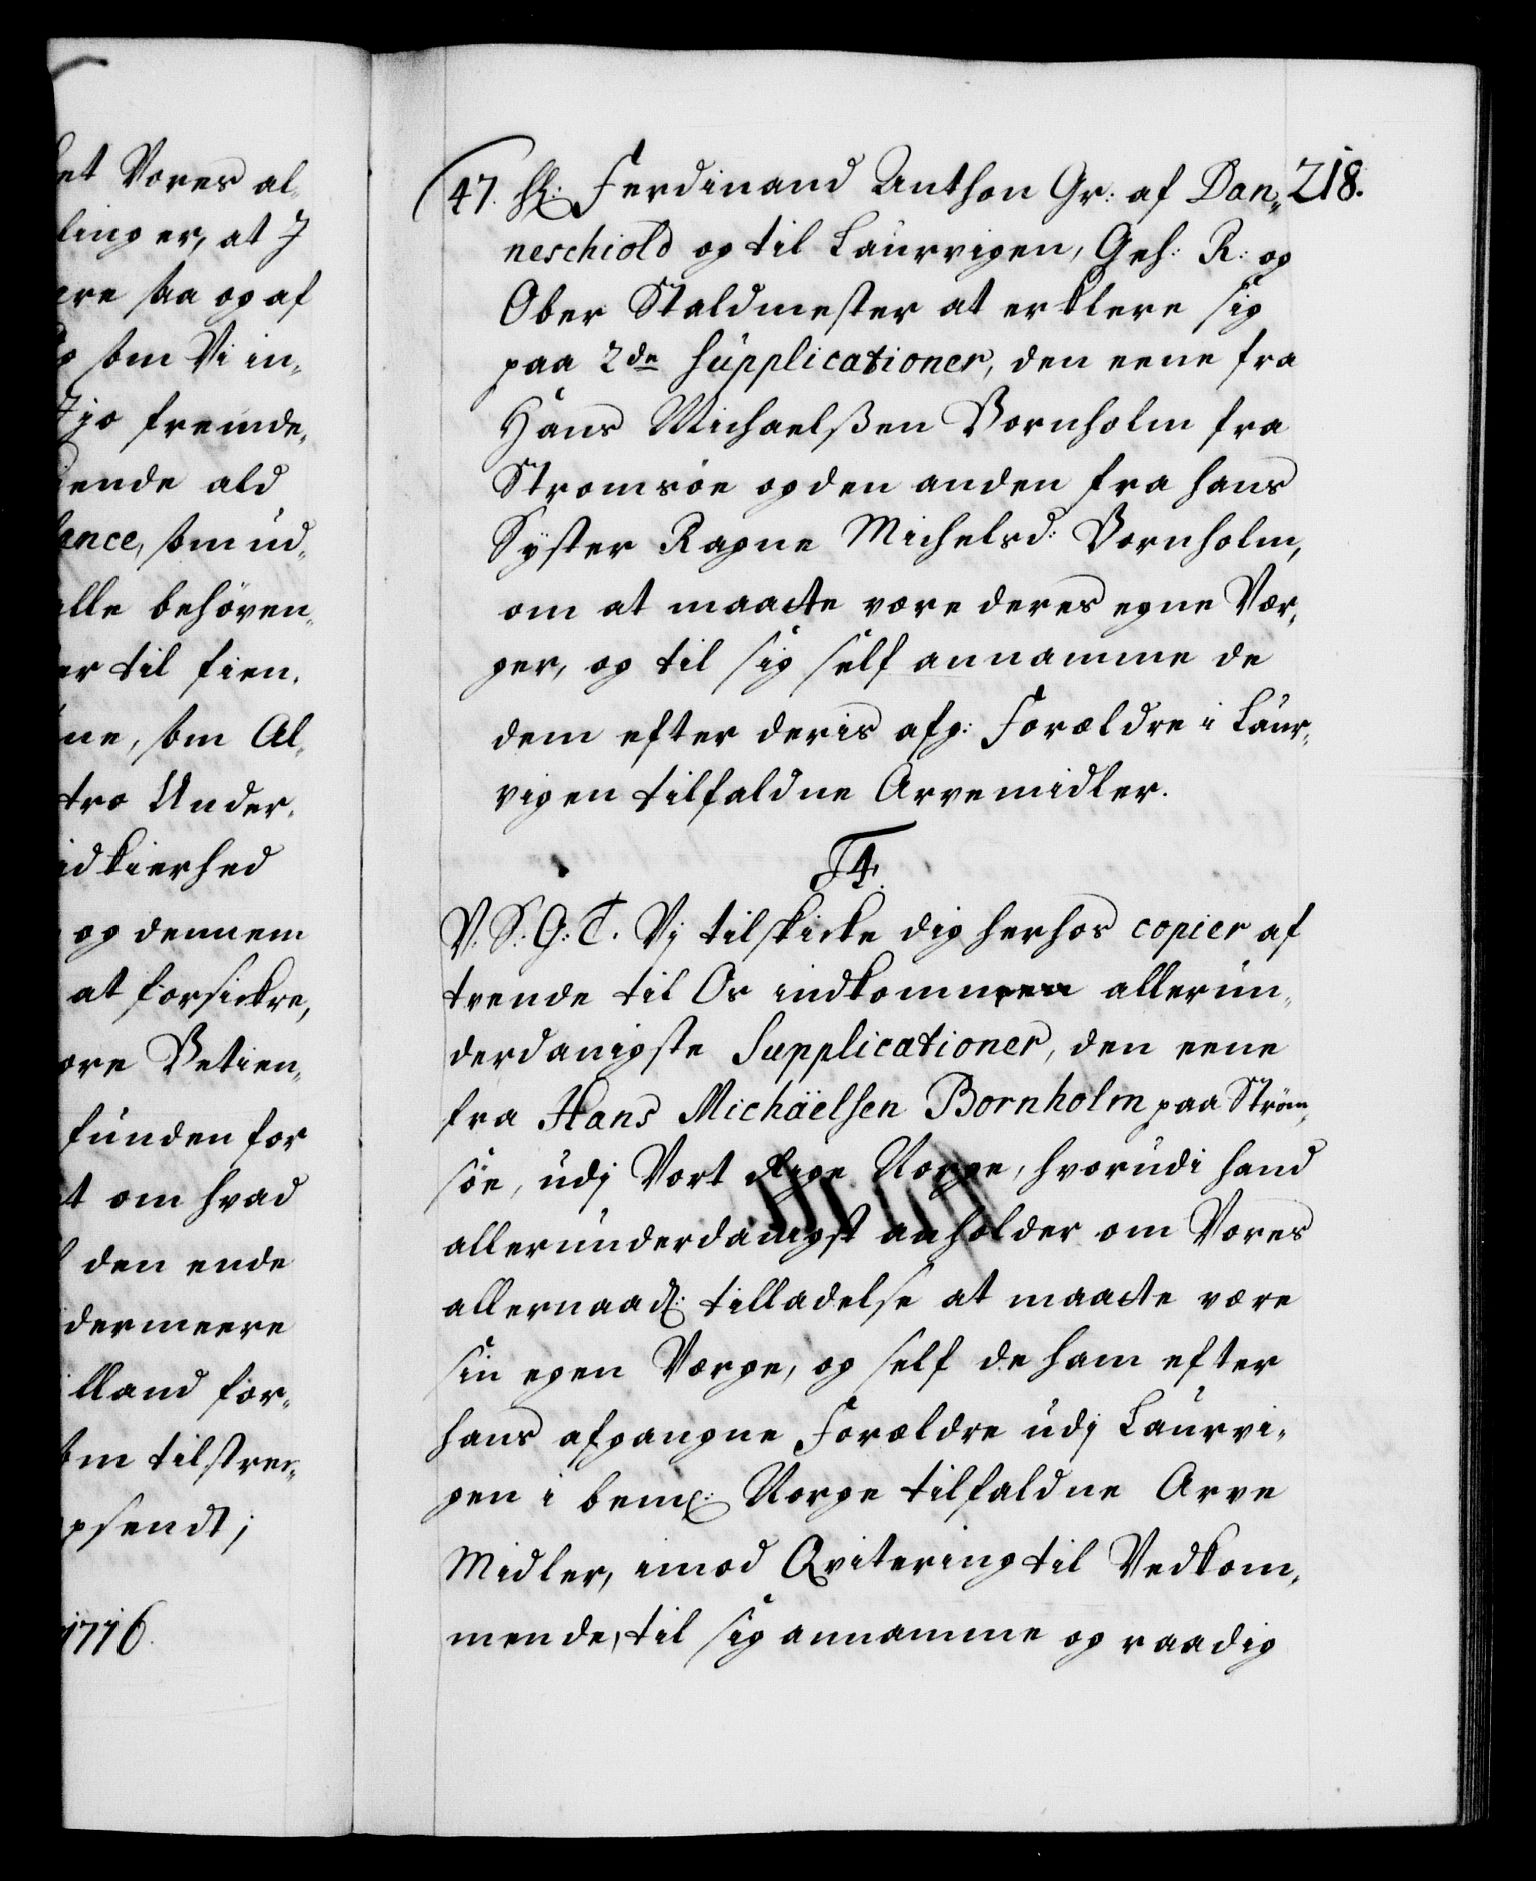 et Vores al-
ling er, at J
ere saa og af
som Vi in-
Jjo fremde-
ende ald
ance, som ud-
alle behöven-
er til fien-
ne, som Al-
tro Under-
idkierhed
og dennem
at forsickre,
ore Betien-
funden for
t om hvad
den ende
dermeere
lland for-
om tilstrec-
psendt;
1716.
218.
47. H: Ferdinand Anthon Gr: af Dan-
neschiold og til Laurvigen, Geh: R: og
Ober Staldmester at erklere sig
paa 2de supplicationer, den eene fra
Hans Michaelßen Bornholm fra
Stromsöe og den anden fra hans
Syster Ragne Michelsd: Bornholm,
om at maatte være deres egne Vær-
ger, og til sig self annamme de
dem efter deris afg: Forældre i Laur-
vigen tilfaldne Arvemidler.
F4.
V. S. G. T. Vj tilskicke dig herhos copier af
tvende til Os indkommen allerun-
derdanigste Supplicationer, den eene
fra Hans Michäelsen Bornholm paa Ström-
söe, udj Vort Rige Norge, hvorudi hand
allerunderdanigst anholder om Vores
allernaad: tilladelse at maatte være
sin egen Værge, og self de ham efter
hans afgangne Forældre udj Laurvi-
gen i bem: Norge tilfaldne Arve
Midler, imod Qvitering til Vedkom-
mende, til sig annamme og raadig